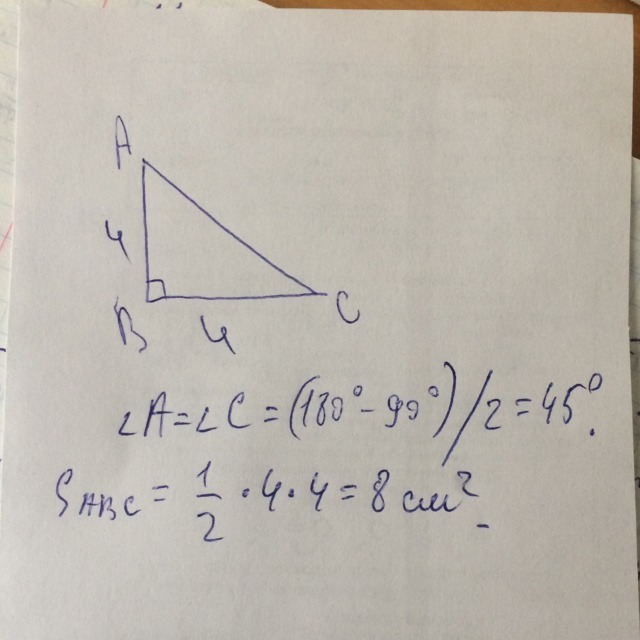 A
4
B
4
C
∠A=∠C=(180°-90°)/2=45°.
S ABC = 1/2 · 4 · 4 = 8 см²